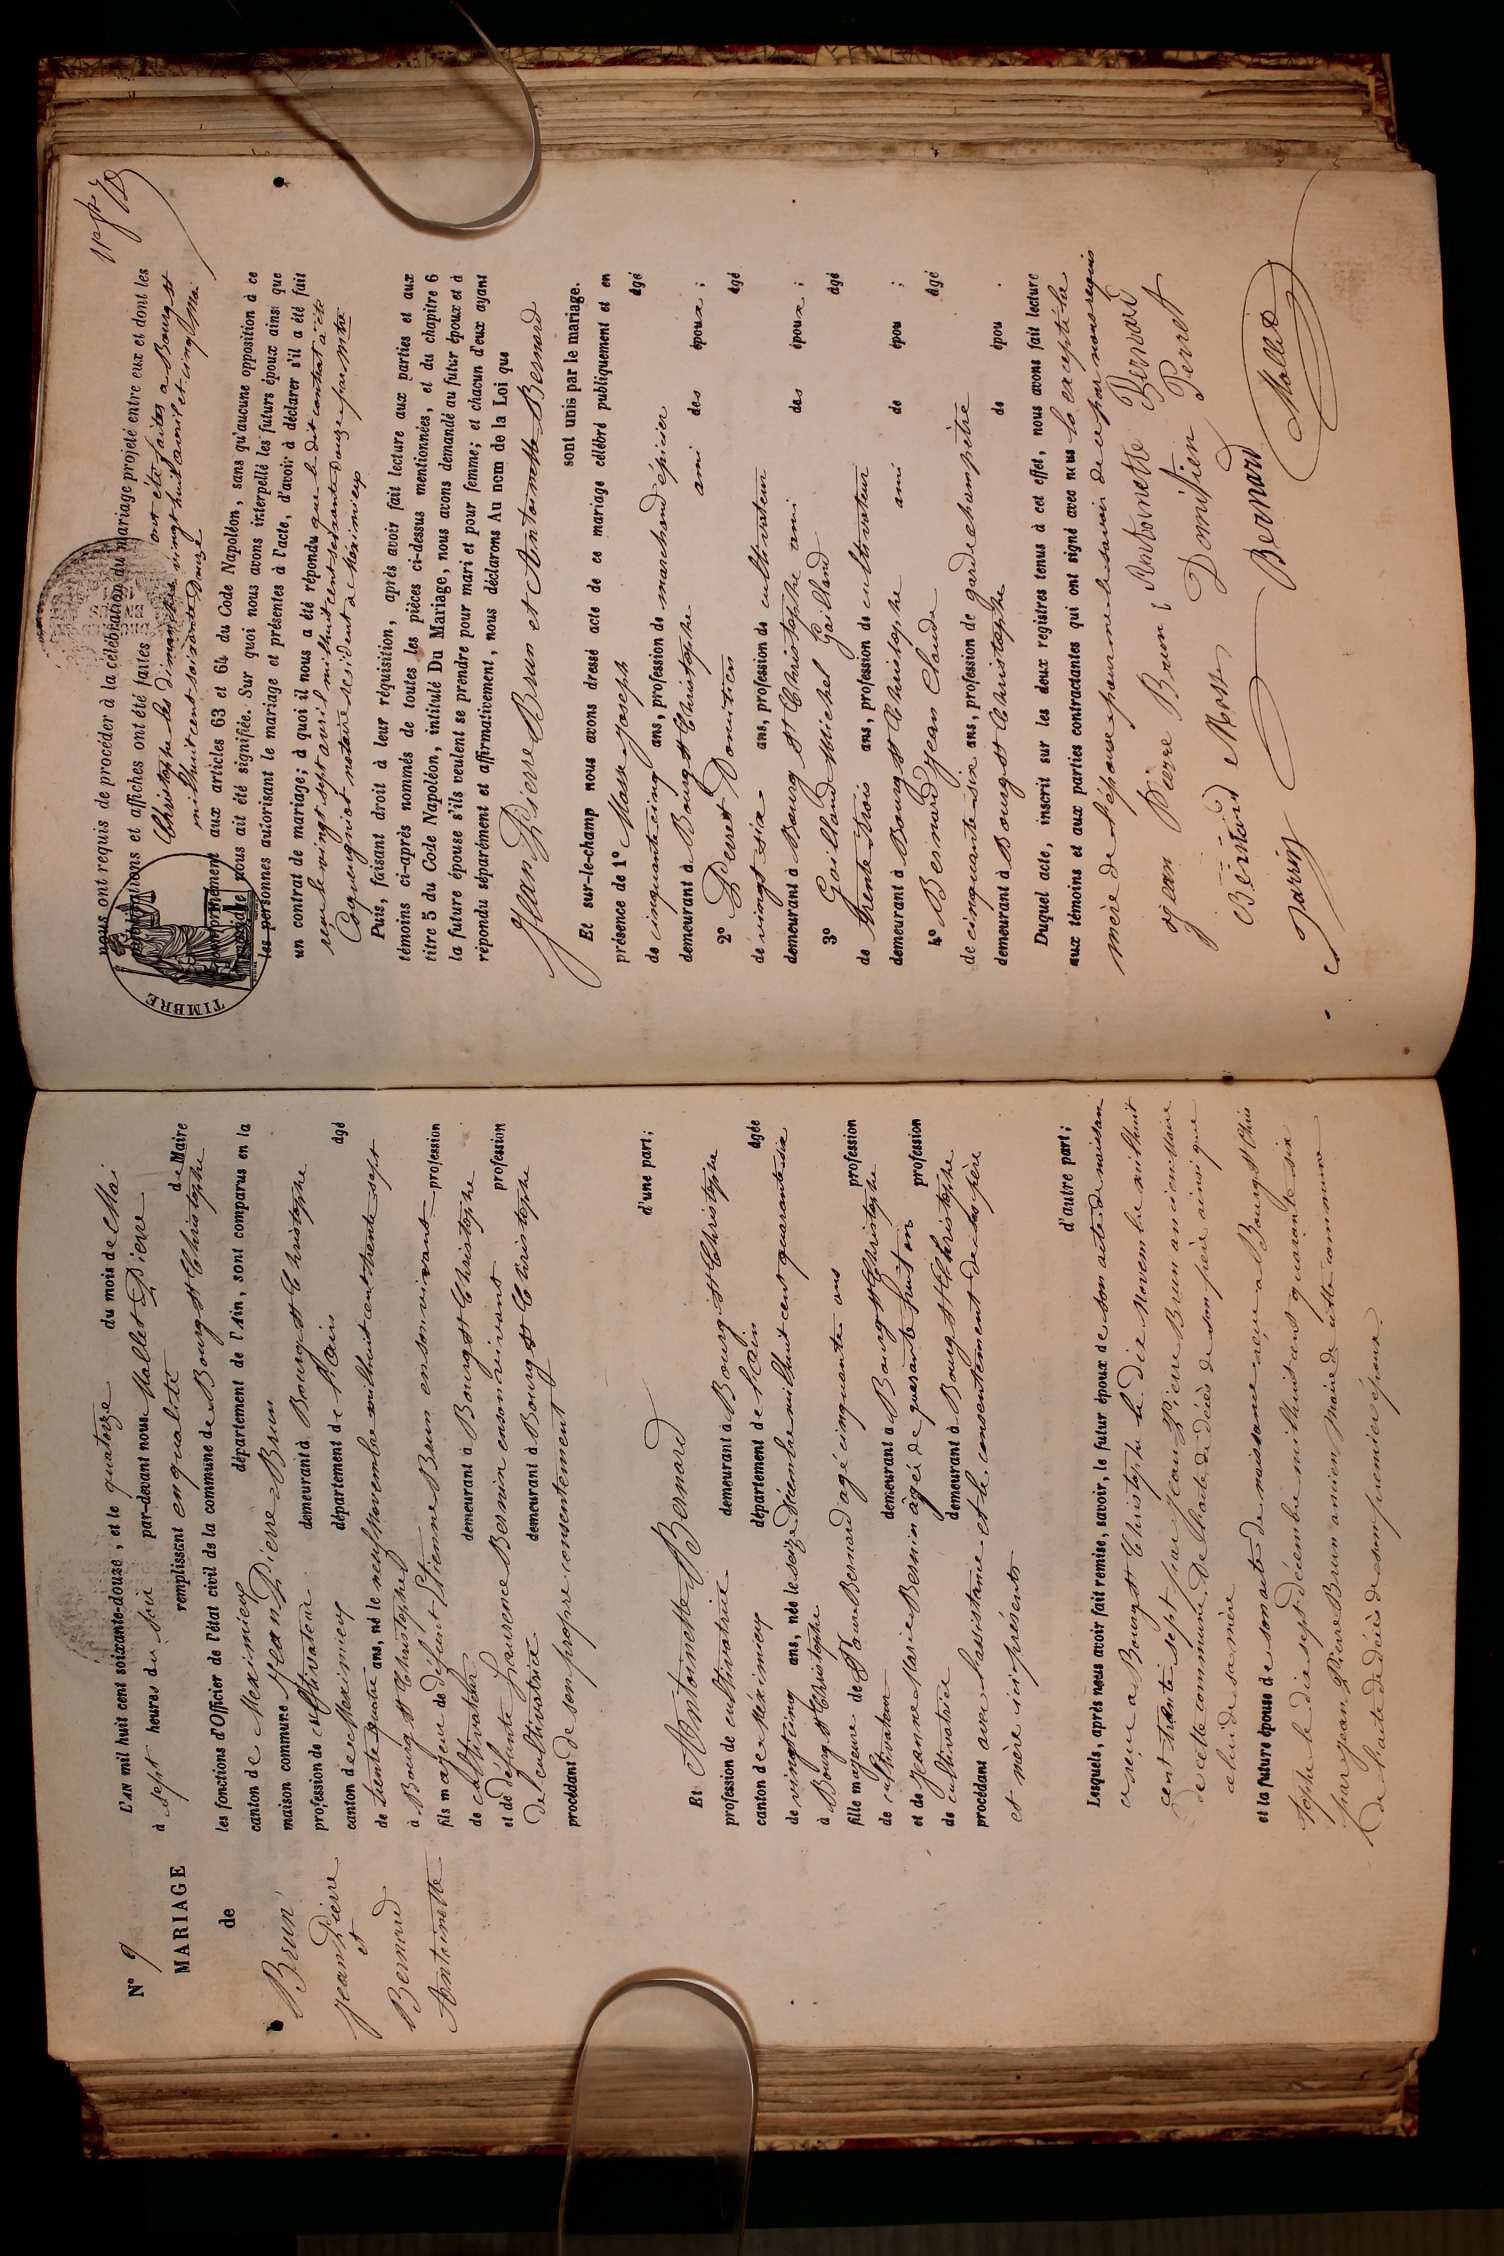 N° 9
MARIAGE
de
Brun
Jean Pierre
et
Bernard
Antoinette
L'an mil huit cent soixante-douze, et le quatorze du mois de Mai
à sept heures du soir par-devant nous Mollet Pierre
remplissant en qualité de Maire
les fonctions d'Officier de l'état civil de la commune de Bourg St Christophe
canton de Meximieux département de l'Ain, sont comparus en la
maison commune Jean Pierre Brun
profession de cultivateur demeurant à Bourg St Christophe
canton de Meximieux département de l'Ain âgé
de trente quatre ans, né le neuf Novembre mil huit cent trente sept
à Bourg St Christophe
fils majeur de défunt Etienne Brun en son vivant profession
de cultivateur demeurant à Bourg St Christophe
et de défunte Laurence Bernin en son vivant profession
de cultivatrice demeurant à Bourg St Christophe
procédant de son propre consentement
d'une part;
Et Antoinette Bernard
profession de cultivatrice demeurant à Bourg St Christophe
canton de Méximieux département de l'Ain âgée
de vingt cinq ans, née le seize Décembre mil huit cent quarante six
à Bourg St Christophe
fille majeure de Bernard agé cinquante ans profession
de cultivateur demeurant à Bourg St Christophe
et de Jeanne Marie Bernin âgée de quarante huit ans profession
de cultivatrice demeurant à Bourg St Christophe
procédant avec l'assistance et le consentement de ses père
et mère ici présents
d'autre part;
Lesquels, après nous avoir fait remise, savoir, le futur époux de son acte de naissan
ce reçu a Bourg St Christophe le dix Novembre mil huit
cent trente sept par Jean Pierre Brun ancien Maire
de cette commune. De l'acte de décès de son père ainsi que
celui de sa mère
et la future épouse de son acte de naissance reçu a Bourg St Chris
tophe le dix sept Décembre mil huit cent quarante six
par Jean Pierre Brun ancien Maire de cette commune
De l'acte de décès de son premier époux
nous ont requis de procéder à la célébration du mariage projeté entre eux et dont les
publications et affiches ont été faites ont été faites a Bourg St
Christophe les dimanches vingt huit avril et cinq Mai
mil huit cent soixante douze
conformément aux articles 63 et 64 du Code Napoléon, sans qu'aucune opposition à ce
mariage nous ait été signifiée. Sur quoi nous avons interpellé les futurs époux ainsi que
les personnes autorisant le mariage et présentes à l'acte, d'avoir à déclarer s'il a été fait
un contrat de mariage; à quoi il nous a été répondu que le dit contrat a été
reçu le vingt sept avril mil huit cent soixante douze par Mtre
notaire résident a Méximieux
Puis, faisant droit à leur réquisition, après avoir fait lecture aux parties et aux
témoins ci-après nommés de toutes les pièces ci-dessus mentionnées, et du chapitre 6
titre 5 du Code Napoléon, intitulé Du Mariage, nous avons demandé au futur époux et à
la future épouse s'ils veulent se prendre pour mari et pour femme; et chacun d'eux ayant
répondu séparément et affirmativement, nous déclarons Au nom de la Loi que
Jean Pierre Brun et Antoinette Bernard
sont unis par le mariage.
Et sur-le-champ nous avons dressé acte de ce mariage célébré publiquement et en
présence de 1° Masse Joseph âgé
de cinquante cinq ans, profession de marchand épicier
demeurant à Bourg St Christophe ami des époux;
2° Perret Domitien âgé
de vingt six ans, profession de cultivateur
demeurant à Bourg St Christophe ami des époux;
3° Gaillard Michel Gaillard âgé
de trente trois ans, profession de cultivateur
demeurant à Bourg St Christophe ami de épou ;
4° Bernard Jean Claude âgé
de cinquante six ans, profession de garde champêtre
demeurant à Bourg St Christophe de épou .
Duquel acte, inscrit sur les deux registres tenus à cet effet, nous avons fait lecture
aux témoins et aux parties contractantes qui ont signé avec nous la excepté la
mère de l'épouse pour ne le savoir de ce par nous requis
Jean Pierre Brun Antoinette Bernard
Bernard Masse Domitien Perret
Jarrin Bernard Mollet
TIMBRE